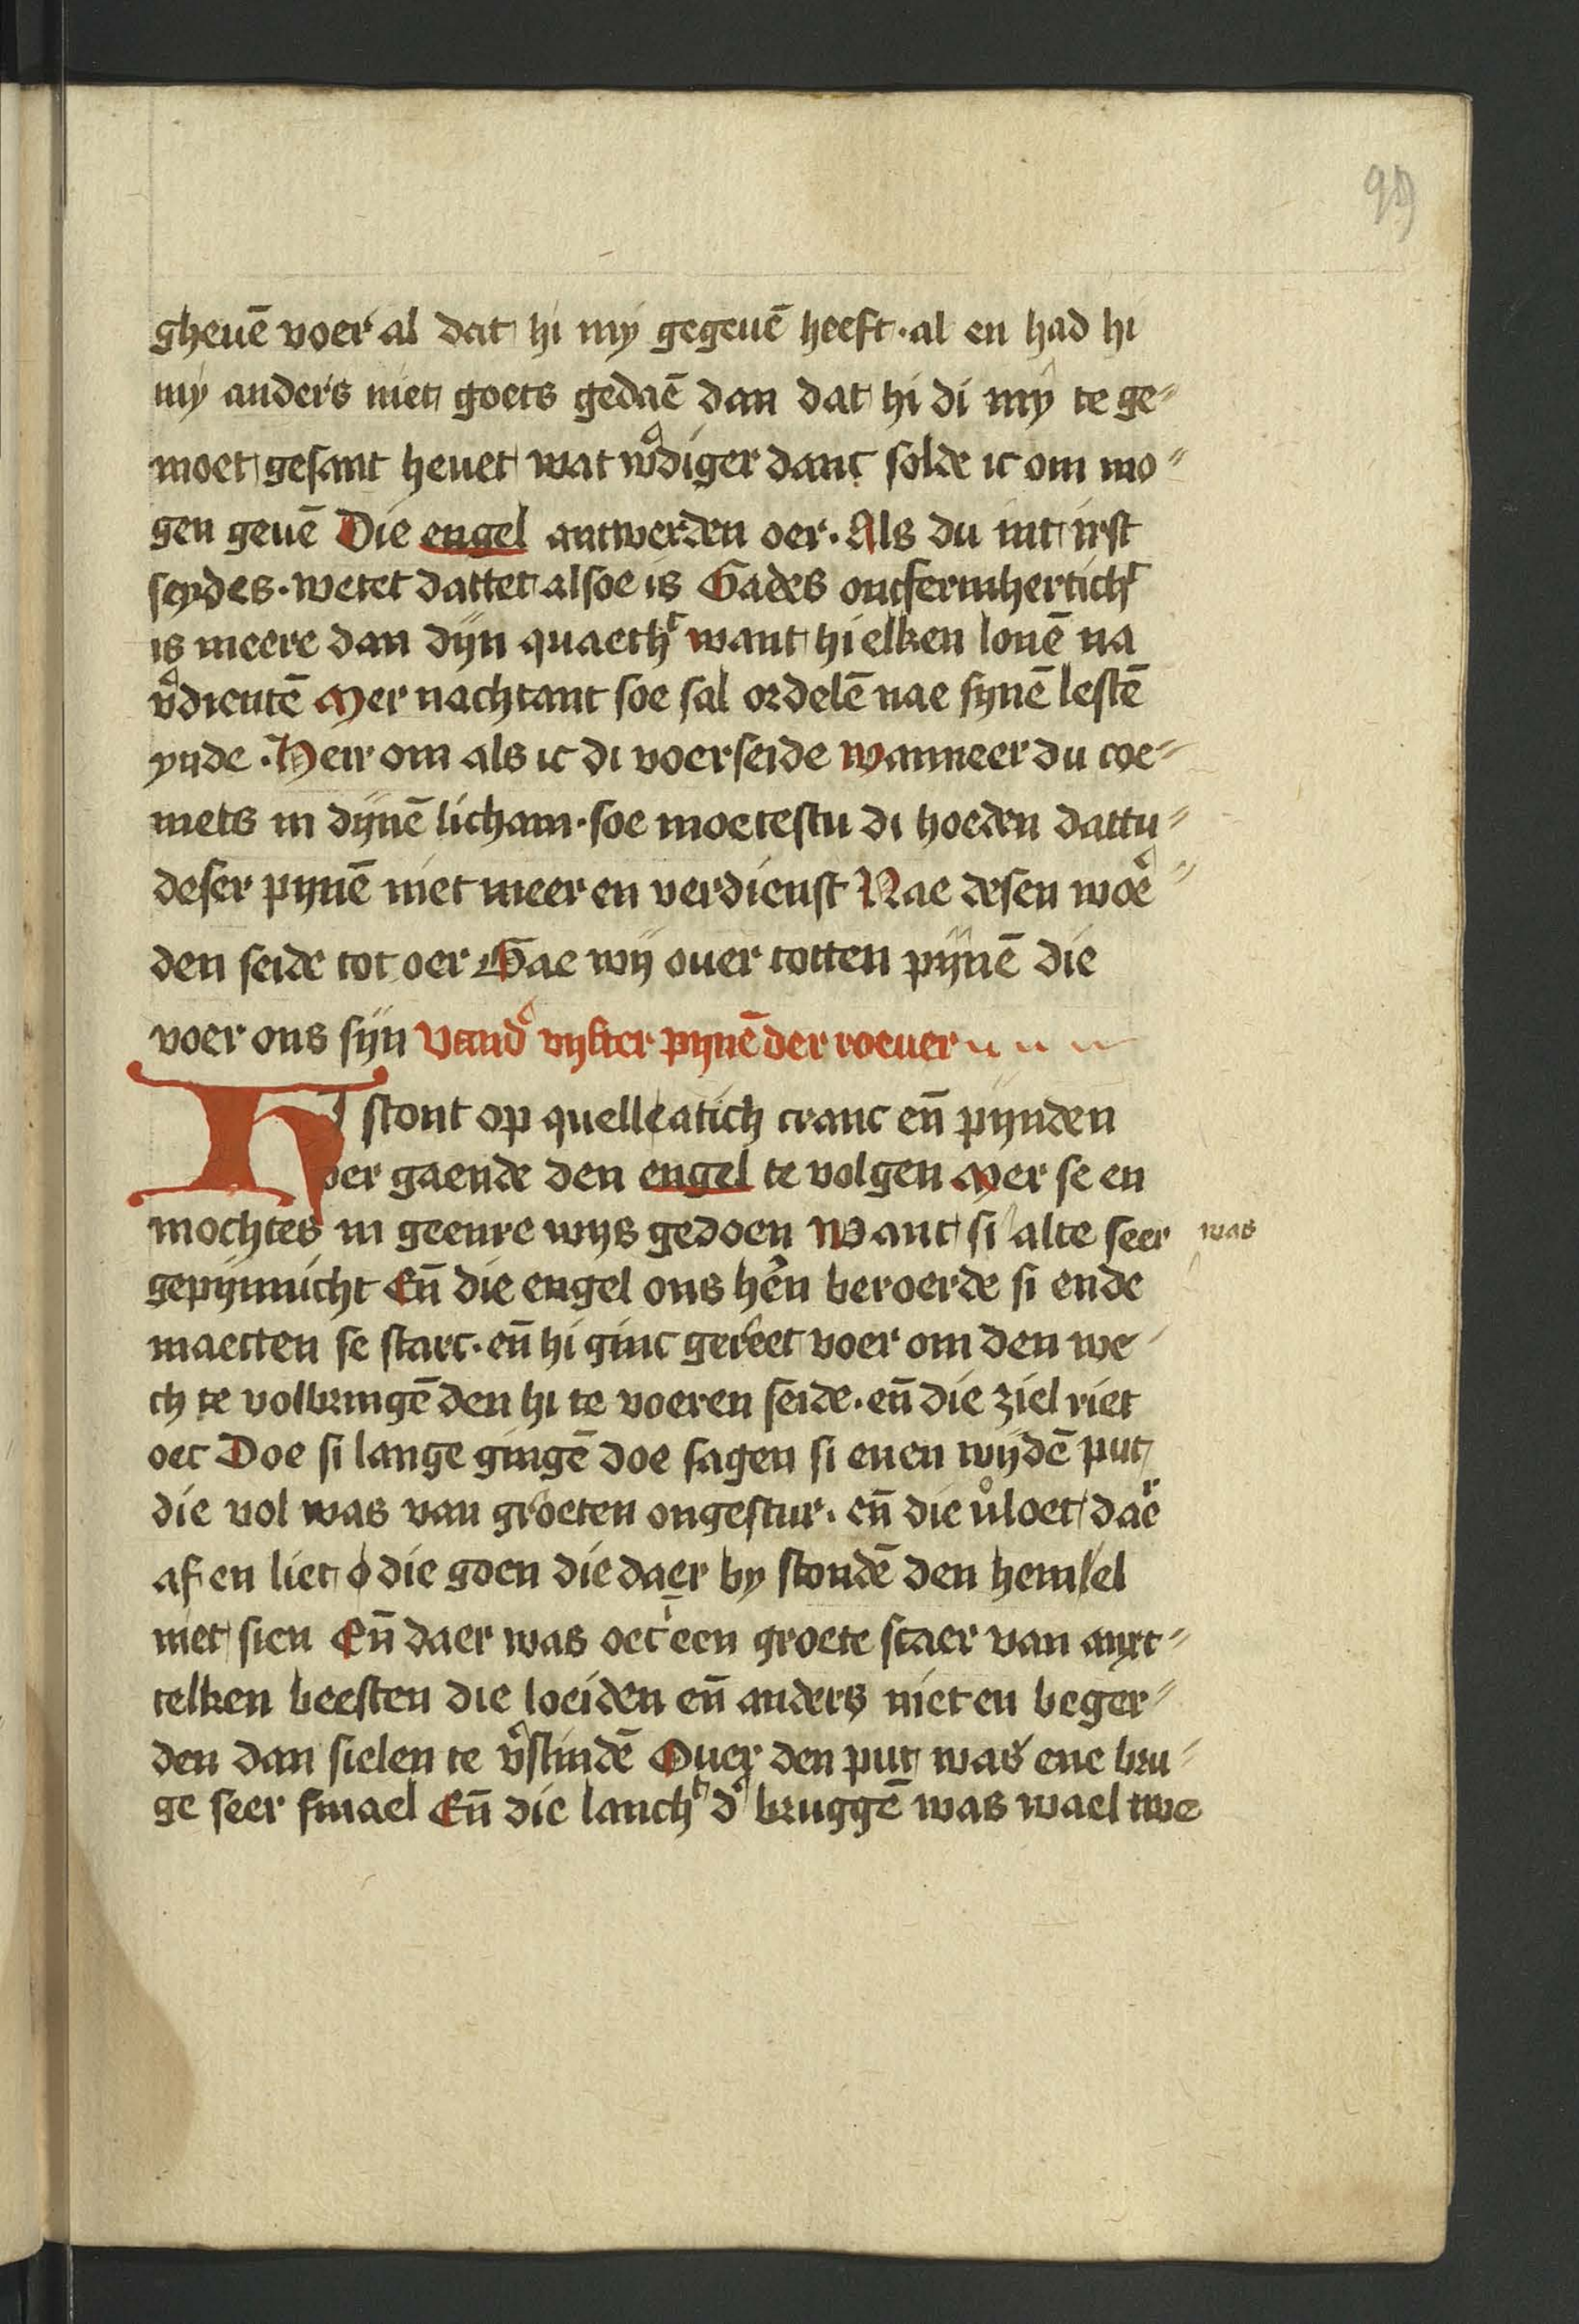 99
gheuē voer al dat hi my gegeuē heeft · al en had hi
my anders niet goets gedaē dan dat hi di my te ge〃
moet gesant heuet wat wͦdiger danc solde ic om mo〃
gen geuē Die engel antwerden oer · Als du int irst
seydes · wetet dattet alsoe is Gades ontfermherticht
is meere dan dijn quaetht want hi elken lonē na
vͦdientē Mer nachtant soe sal ordelē nae synē lestē
ynde · Heir om als ic di voerseide wanneer du coe〃
mets in dijnē licham · soe moetestu di hoeden dattu〃
deser pijnē niet meer en verdienst Nae desen woeͬ〃
den seide tot oer Gae wij ouer totten pijnē die
voer ons sijn Vand' vijfter pijnē der roeuer
HI stont op quelleatich cranc eñ pijnden
oer gaende den engel te volgen Mer se en
mochtes in geenre wijs gedoen Want si alte seer was
gepijnnicht Eñ die engel ons hēn beroerde si ende
maecten se starc · eñ hi ginc gereet voer om den we〃
ch te volbringē den hi te voeren seide · eñ die ziel riet
oec Doe si lange gingē doe sagen si enen wijdē put
die vol was van groeten ongestur · eñ die vͦloet daeͬ
af en liet die goen die daer by stondē den hemel
niet sien Eñ daer was oec een groete scaer van anxt〃
telken beesten die loeiden eñ anders niet en beger〃
den dan sielen te vͦslindē Ouer den put was ene bru〃
ge seer smael Eñ die lancht d' bruggē was wael twe